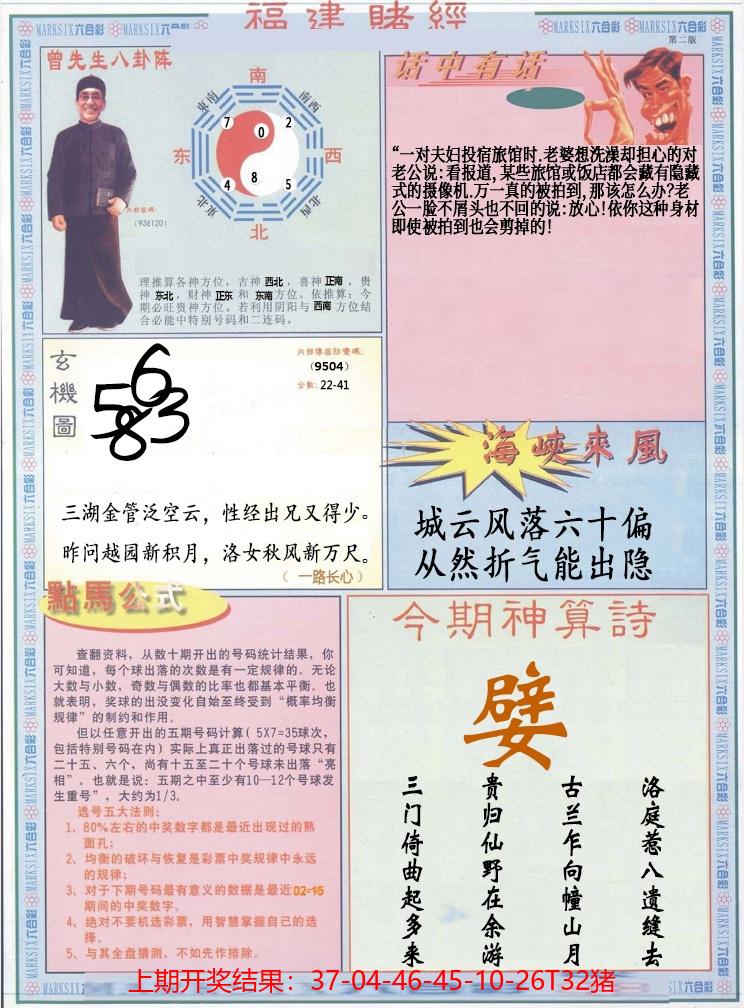 福建賭經
MARKSIX六合彩 MARKSIX六合彩 MARKSIX六合彩 MARKSIX六合彩
第二版
曾先生八卦阵
南
东南
南西
7
0
2
东
西
4
8
5
东北
北西
北
内部密碼:
(936120)
理推算各神方位，吉神 西北，喜神 正南，贵
神 东北，财神 正东 和 东南方位。依推算：今
期必旺贵神方位。若利用阴阳与 西南 方位结
合必能中特别号码和二连码。
话中有话
“一对夫妇投宿旅馆时.老婆想洗澡却担心的对
老公说:看报道,某些旅馆或饭店都会藏有隐藏
式的摄像机.万一真的被拍到,那该怎么办?老
公一脸不屑头也不回的说:放心!依你这种身材
即使被拍到也会剪掉的!
玄機圖
6
5 3
8
内部傳密防變碼:
(9504)
合数: 22-41
三湖金管泛空云，性经出兄又得少。
昨问越园新积月，洛女秋风新万尺。
（ 一路长心）
海峽來風
城云风落六十偏
从然折气能出隐
點馬公式
查翻资料，从数十期开出的号码统计结果，你
可知道，每个球出落的次数是有一定规律的。无论
大数与小数，奇数与偶数的比率也都基本平衡。也
就表明，奖球的出没变化自始至终受到“概率均衡
规律”的制约和作用。
但以任意开出的五期号码计算( 5X7=35球次，
包括特别号码在内）实际上真正出落过的号球只有
二十五、六个，尚有十五至二十个号球未出落“亮
相”。也就是说：五期之中至少有10—12个号球发
生重号”，大约为1/3。
选号五大法则：
1、80%左右的中奖数字都是最近出现过的熟
面孔；
2、均衡的破坏与恢复是彩票中奖规律中永远
的规律；
3、对于下期号码最有意义的数据是最近02=15
期间的中奖数字。
4、绝对不要机选彩票，用智慧掌握自己的选
择。
5、与其全盘猜测，不如先作排除．
今期神算詩
嬖
洛庭惹八遗缝去
古兰乍向幢山月
贵归仙野在余游
三门倚曲起多来
上期开奖结果：37-04-46-45-10-26T32猪